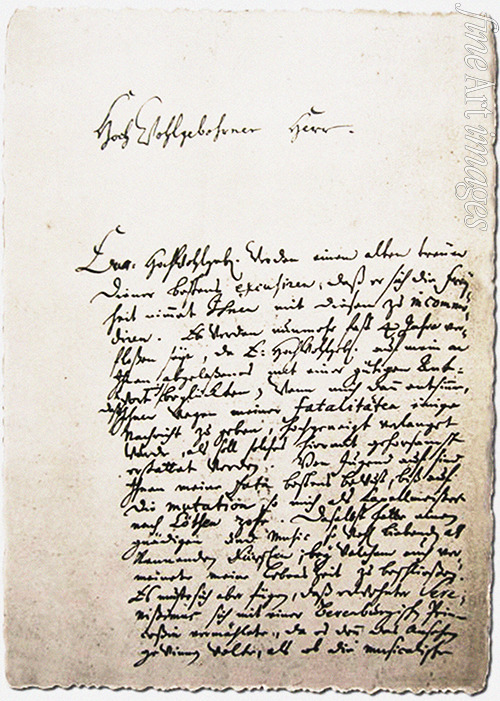 Hoch Wohlgebohrner Herr.
Ew: Hochwohlgeb. werden einem alten treüen
Diener bestens excusiren, daß er sich die Frey-
heit nimmet Ihnen mit diesen zu incommo-
diren. Es werden nunmehr fast 4 Jahre ver-
floßen seyn, da E: Hochwohlgeb. auf mein an
Ihnen abgelaßenes mit einer gütigen Ant-
wort mich beglückten; Wenn mich dann entsinne,
daß Ihnen wegen meiner Fatalitäten einige
Nachricht zu geben, hochgeneigt verlanget
wurde, als soll solches hiermit gehorsamst
erstattet werden. Von Jugend auf sind
Ihnen meine Fata bestens bewust, biß auf
die mutation, so mich als Capellmeister
nach Cöthen zohe. Daselbst hatte einen
gnädigen und Music so wohl liebenden als
kennenden Fürsten; bey welchem auch ver-
meinete meine Lebenszeit zu beschließen.
Es muste sich aber fügen, daß erwehnter Sere-
nißimus sich mit einer Berenburgischen Prin-
ceßin vermählete, da es denn das Ansehen
gewinnen wolte, als ob die musicalische
fine Art images